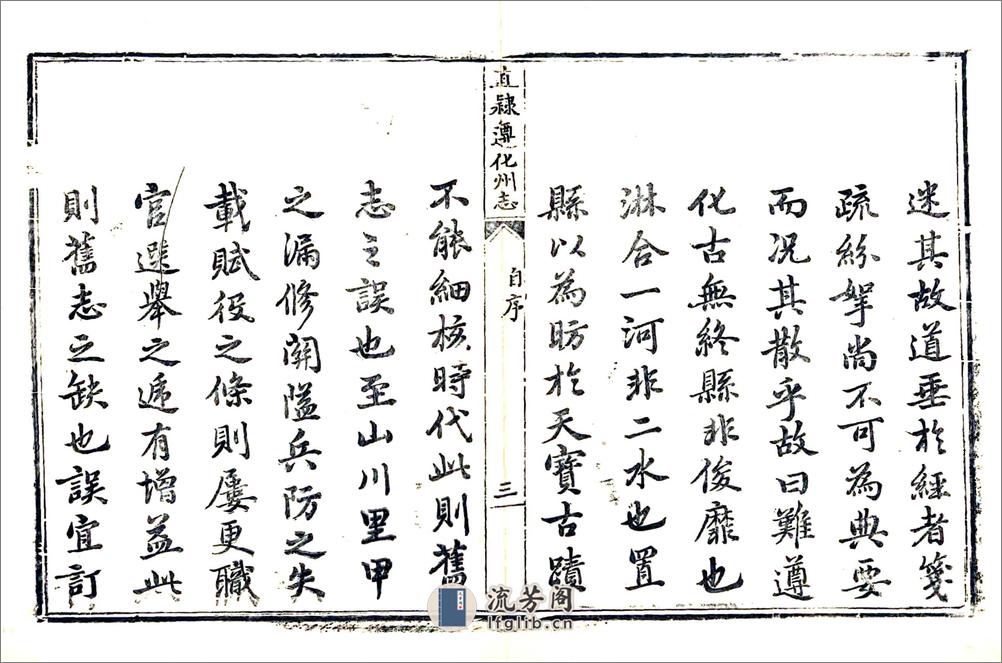 迷其故道垂於經者箋
疏絲挐尚不可為典要
而况其散乎故曰難遵
化古無終縣非俊靡也
淋合一河非二水也置
縣以為昉於天寶古蹟
直隸遵化州志
自序
三
不能細核時代此則舊
志之誤也至山川里甲
之漏修關隘兵防之失
載賦役之條則屢更職
官選舉之遞有增益此
則舊志之缺也誤宜訂
流芳阁
lfglib.cn